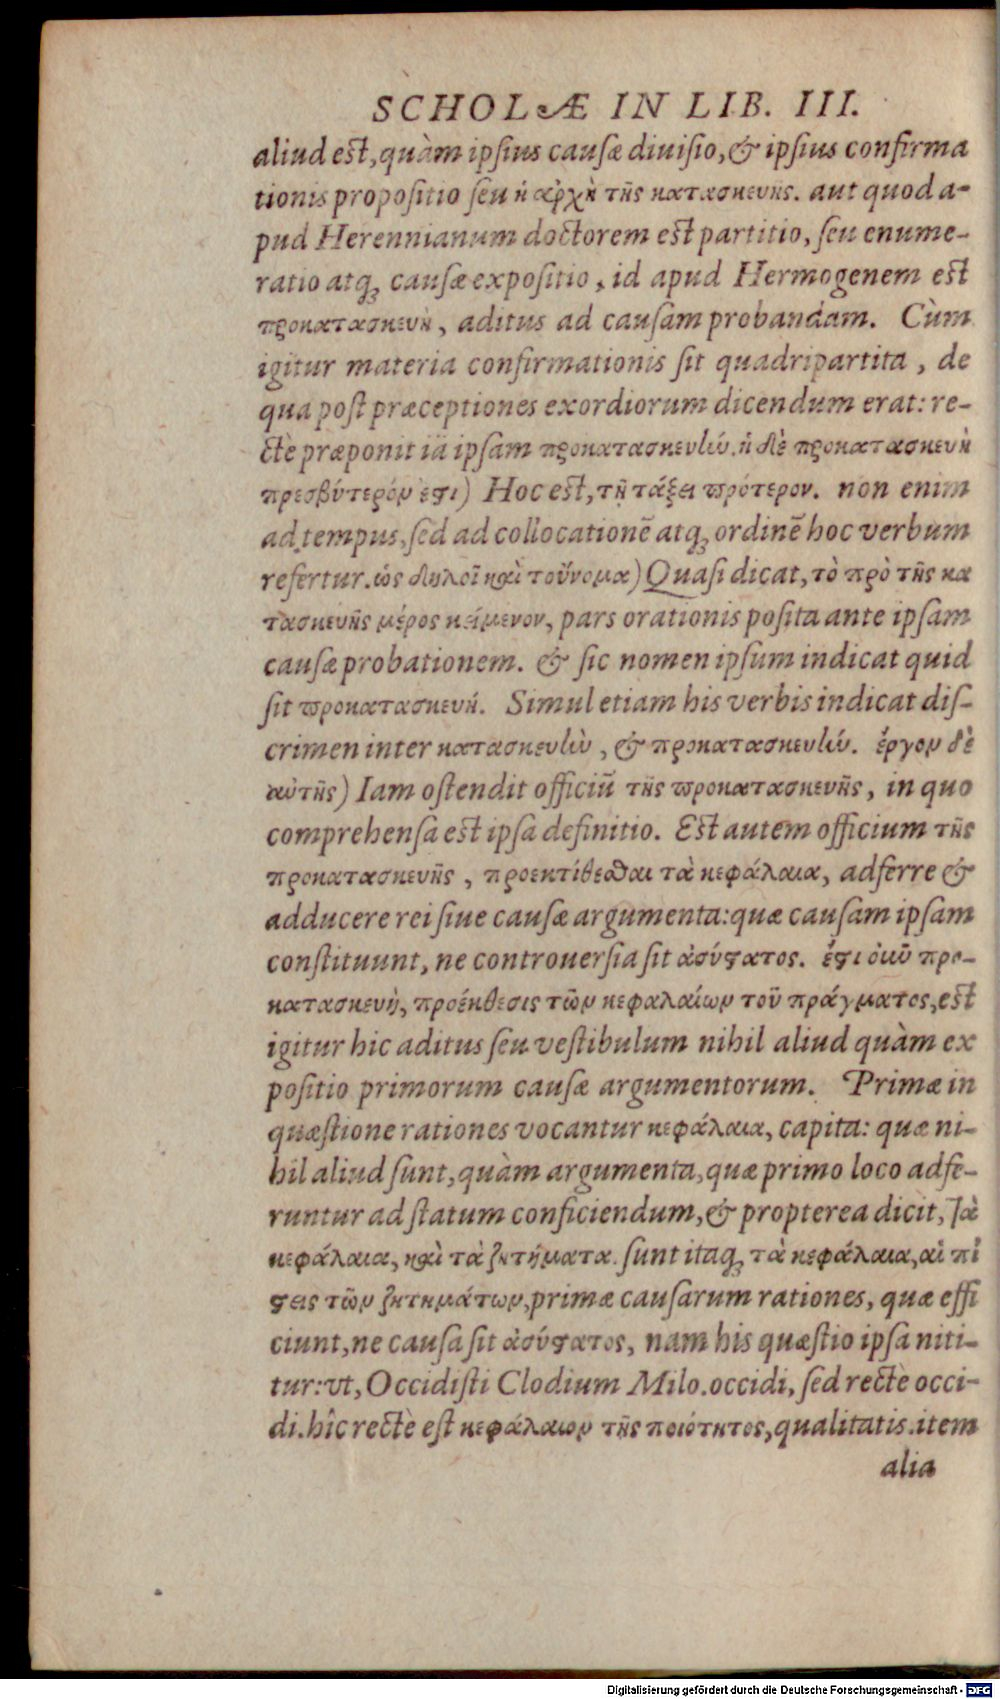 SCHOLÆ IN LIB. III.
aliud est, quàm ipsius causæ diuisio, & ipsius confirma
tionis propositio seu ἡ ἀρχὴ τῆς κατασκευῆς. aut quod a-
pud Herennianum doctorem est partitio, seu enume-
ratio atq; causæ expositio, id apud Hermogenem est
προκατασκευὴ, aditus ad causam probandam. Cùm
igitur materia confirmationis sit quadripartita, de
qua post præceptiones exordiorum dicendum erat: re-
ctè præponit iā ipsam προκατασκευήν. ἡ δὲ προκατασκευὴ
πρεσβύτερόν ἐστι) Hoc est, τῇ τάξει πρότερον. non enim
ad tempus, sed ad collocationē atq; ordinē hoc verbum
refertur. ὡς δηλοῖ καὶ τοὔνομα) Quasi dicat, τὸ πρὸ τῆς κα
τασκευῆς μέρος κείμενον, pars orationis posita ante ipsam
causæ probationem. & sic nomen ipsum indicat quid
sit προκατασκευή. Simul etiam his verbis indicat dis-
crimen inter κατασκευὴν, & προκατασκευήν. ἔργον δὲ
αὐτῆς) Iam ostendit officiū τῆς προκατασκευῆς, in quo
comprehensa est ipsa definitio. Est autem officium τῆς
προκατασκευῆς, προεκτίθεσθαι τὰ κεφάλαια, adferre &
adducere rei siue causæ argumenta: quæ causam ipsam
constituunt, ne controuersia sit ἀσύστατος. ἔστι οὖν προ-
κατασκευὴ, προέκθεσις τῶν κεφαλαίων τοῦ πράγματος, est
igitur hic aditus seu vestibulum nihil aliud quàm ex
positio primorum causæ argumentorum. Primæ in
quæstione rationes vocantur κεφάλαια, capita: quæ ni-
hil aliud sunt, quàm argumenta, quæ primo loco adfe-
runtur ad statum conficiendum, & propterea dicit, τὰ
κεφάλαια, καὶ τὰ ζητήματα. sunt itaq; τὰ κεφάλαια, αἱ πί
στεις τῶν ζητημάτων, primæ causarum rationes, quæ effi
ciunt, ne causa sit ἀσύστατος, nam his quæstio ipsa niti-
tur: vt, Occidisti Clodium Milo. occidi, sed rectè occi-
di. hîc rectè est κεφάλαιον τῆς ποιότητος, qualitatis. item
alia
Digitalisierung gefördert durch die Deutsche Forschungsgemeinschaft - DFG